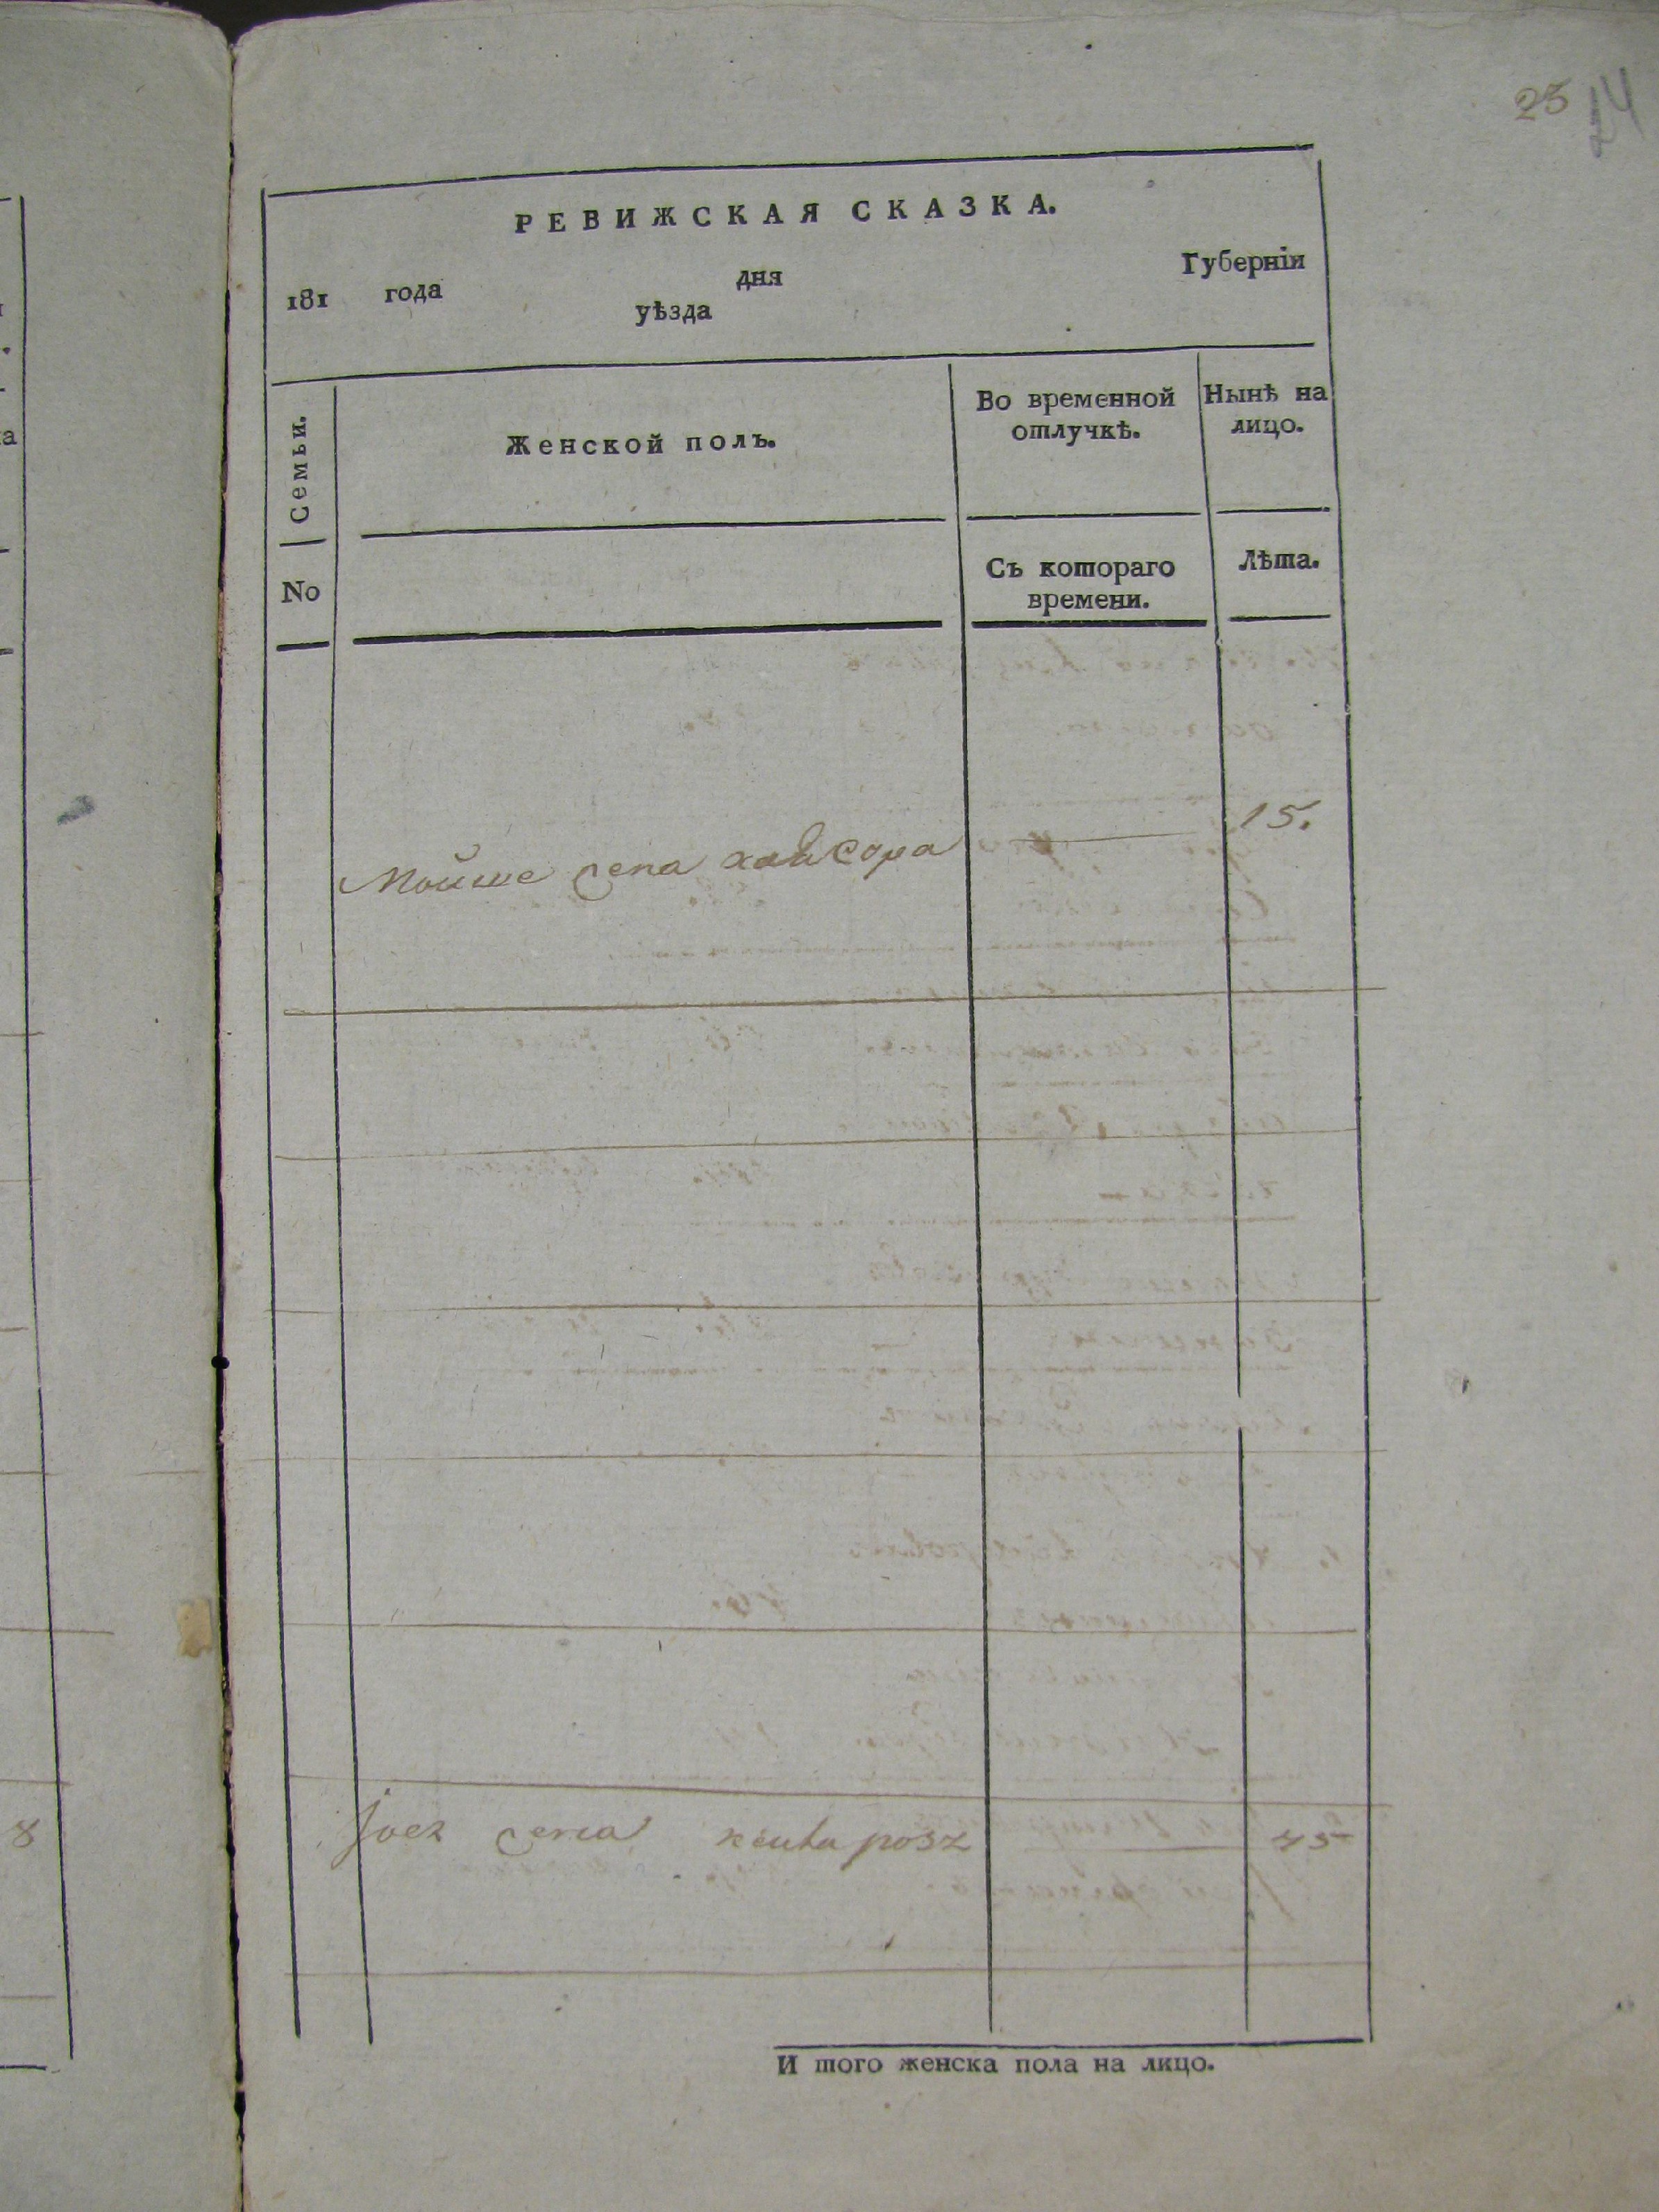 25
24
РЕВИЖСКАЯ СКАЗКА.
181 года дня Губерніи
уѣзда
Семьи.
Женской полъ.
Во временной отлучкѣ.
Нынѣ на лицо.
No
Съ котораго времени.
Лѣта.
Мойше жена хаясора 15.
жена розъ 45
8
И того женска пола на лицо.